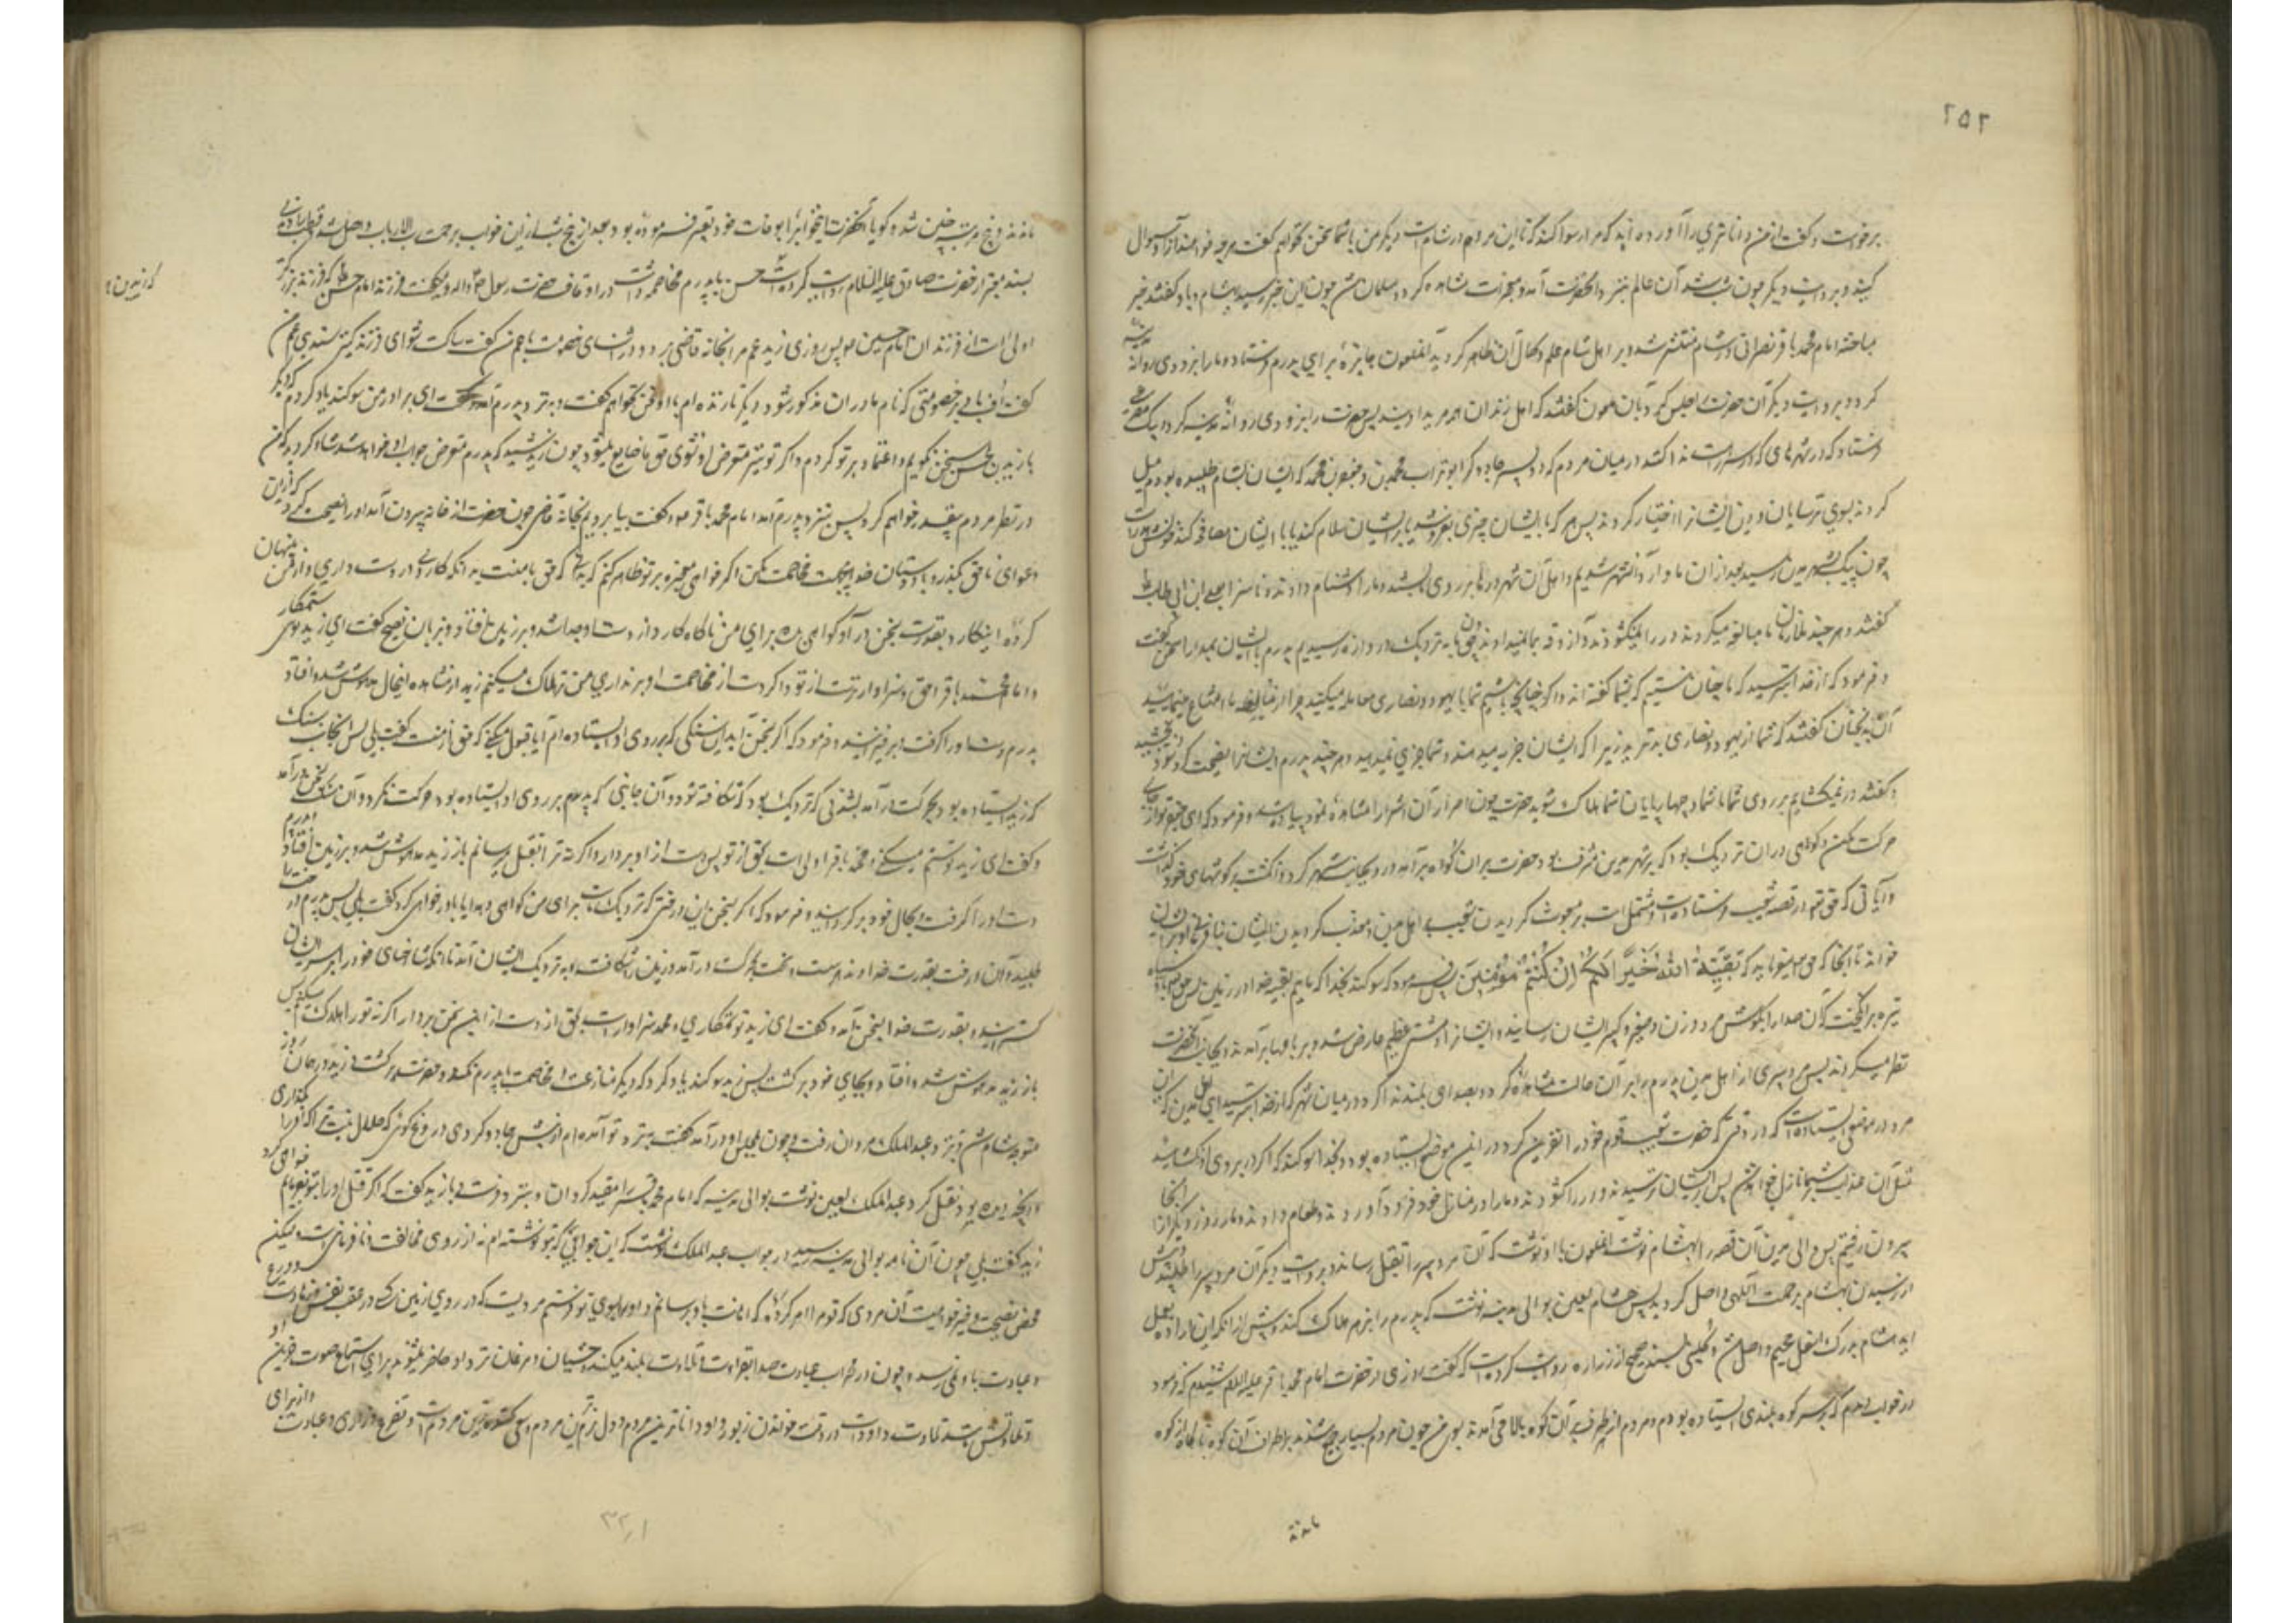 ۲۵۲
برخواست و گفت از من داناتری را آورده‌اید که مرا رسوا کند تا این مرد در شام است دیگر من با شما سخن نخواهم گفت هرچه خواهید از او سؤال
کنید و بروایت دیگر چون شب شد آن عالم بنزد آنحضرت آمد و معجزات مشاهده کرد و مسلمان شد چون این خبر بهشام رسید و باو گفتند خبر
مباحثه امام محمد باقر نصرانی در شام منتشر شد و بر اهل شام علم و کمال آن ظاهر گردید آنملعون جایزه برای پدرم فرستاد و ما را بزودی روانه مدینه
کرد و بروایت دیگر آن حضرت را حبس کرد بآن ملعون گفتند که اهل زندان همه مرید او شدند پس حضرت را بزودی روانه مدینه کرد و پیک
فرستاد که در شهرهای که در سر راهست ندا کنند در میان مردم که دو پسر جادوگر ابوتراب محمد بن علی و جعفر بن محمد که ایشان بشام طلبیده بودم میل
کردند بسوی ترسایان و دین ایشان را اختیار کردند پس هر که بایشان چیزی بفروشد یا برایشان سلام کند یا با ایشان مصافحه کند خونش هدر است
چون پیک بشهر مدین رسید بعد از آن ما وارد آنشهر شدیم و اهل آن شهر درها بر روی ما بستند و ما را دشنام دادند و ناسزا بعلی ابن ابی طالب
گفتند و هر چند ملازمان ما مبالغه میکردند در را نمیگشودند و آذوقه بما نمیدادند چون ما به نزدیک دروازه رسیدیم پدرم با ایشان بمدارا سخن گفت
و فرمود که از خدا بترسید که ما چنان نیستیم که بشما گفته‌اند و اگر چنانچه باشیم شما با یهود و نصاری معامله میکنید چرا از مبایعه ما امتناع مینمایید
آن بدبختان گفتند که شما از یهود و نصاری بدترید زیرا که ایشان جزیه میدهند و شما جزیه نمیدهید و هر چند پدرم ایشان را نصیحت کرد سود نبخشید
و گفتند در نمیگشاییم بر روی شما تا شما و چهارپایان شما هلاک شوید حضرت چون اصرار آن اشرار را مشاهده نمود پیاده شد و فرمود که ای جعفر تو از جای
حرکت مکن و کوهی در آن نزدیک بود که بر شهر مدین مشرف بود حضرت بر آن کوه برآمد و رو بجانب شهر کرد و انگشت بر گوشهای خود گذاشت
و آیاتی که حق تعالی در قصه شعیب فرستاده است و مشتمل است بر مبعوث گردیدن شعیب بر اهل مدین و معذب گردیدن ایشان بنافرمانی او بر ایشان
خواند تا آنجا که حق تعالی میفرماید که بَقِیَّةُ اللّهِ خَیْرٌ لَکُمْ اِنْ کُنْتُمْ مُؤْمِنِینَ پس فرمود که سوگند بخدا که ماییم بقیه خدا در زمین پس حق تعالی بادی سیاه
تیره برانگیخت که آن صدا را بگوش مرد و زن و صغیر و کبیر ایشان رسانید و ایشان را دهشتی عظیم عارض شد و بر بامها برآمدند و بجانب آنحضرت
نظر میکردند پس مرد پیری از اهل مدین پدرم را بر آن حالت مشاهده کرد و بصدای بلند ندا کرد در میان شهر که از خدا بترسید ای اهل مدین که این
مرد در موضعی ایستاده است که در وقتی که حضرت شعیب قوم خود را نفرین کرد در این موضع ایستاده بود و بخدا سوگند که اگر در بروی او نگشایید
مثل آن عذاب بر شما نازل خواهد شد پس ایشان ترسیدند و در را گشودند و ما را در منازل خود فرود آوردند و طعام دادند و ما روز دیگر از آنجا
بیرون رفتیم پس والی مدین آن قصه را بهشام نوشت آنملعون باو نوشت که آن مرد پیر را بقتل رساند و بروایت دیگر آن مرد پیر را طلبید و پیش
از رسیدن بهشام برحمت الهی واصل گردید پس هشام لعین بوالی مدینه نوشت که پدرم را بزهر هلاک کند و پیش از آنکه این اراده بعمل
آید هشام بدرک اسفل جحیم واصل شد و کلینی بسند صحیح از زراره روایت کرده است که گفت روزی از حضرت امام محمد باقر علیه السلام شنیدم که فرمود
در خواب دیدم که بر سر کوه بلندی ایستاده بودم و مردم از هر طرف آن کوه بالا می‌آمدند بسوی من چون مردم بسیار جمع شدند بر اطراف آن کوه ناگاه کوه
ماندند و پنج مرتبه چنین شد و گویا آنحضرت این خواب را بوفات خود تعبیر فرموده بود بعد از پنج شب از این خواب برحمت رب الارباب واصل شد
بسند معتبر از حضرت صادق علیه السلام روایت کرده است حسن با پدرم مخاصمه داشت در اوقاف حضرت رسول ص و میگفت فرزند امام حسن که فرزند بزرگتر
اولی است از فرزندان امام حسین پس روزی زید عم مرا بخانه قاضی برد و در اثنای خصومت با عم من گفت ساکت شو ای فرزند کنیز سندی عم من
گفت اف باد بر خصومتی که نام مادران مذکور شود دیگر تا زنده‌ام با او سخن نخواهم گفت و به نزد پدرم آمد و گفت ای برادر من سوگند یاد کردم که دیگر
با زید بن حسن سخن نگویم و اعتماد بر تو کردم و اگر تو نیز متعرض او نشوی حق ما ضایع میشود چون زید شنید که پدرم متعرض جواب او خواهد شد شاد گردید که من
در نظر مردم بیقدر خواهم کرد پس بنزد پدرم آمد امام محمد باقر و گفت بیا برویم بخانه قاضی چون حضرت از خانه بیرون آمد او را نصیحت کرد که از این
دعوای ناحق بگذر و با دوستان خدا بیجهت مخاصمت مکن اگر خواهی معجزه بر تو ظاهر کنم که بدانی که حق با منست بدانکه کاردی در دست داری و از من پنهان
کرده این کارد بقدرت بسخن درآید و گواهی دهد برای من ناگاه کارد از دست او جدا شد و بر زمین افتاد و بزبان فصیح گفت ای زید توئی ستمکار
و امام محمد باقر احق و سزاوارتر است از تو و اگر دست از مخاصمت او برنداری من ترا هلاک میکنم زید از مشاهده اینحال مدهوش شد و افتاد
پدرم دست او را گرفت و برخیزانید و فرمود که اگر بسخن آید این سنگی که بر روی او ایستاده‌ام آیا قبول میکنی که حق از منست گفت بلی پس آنجانب سنگ
که زید ایستاده بود بحرکت درآمد بشدتی که نزدیک بود که شکافته شود و آن جانبی که پدرم بر روی او ایستاده بود حرکت نکرد و آن سنگ بسخن درآمد
و گفت ای زید تو ستم میکنی و محمد باقر اولی است بحق از تو پس دست از او بردار و اگر نه ترا بقتل میرسانم باز زید مدهوش شد و بر زمین افتاد پدرم
دست او را گرفت و بحال خود برگردانید و فرمود که اگر بسخن آید این درختی که نزدیک ماست برای من گواهی دهد آیا باور خواهی کرد گفت بلی پس پدرم درخت را
طلبید و آن درخت بقدرت خداوند درست بحرکت درآمد و زمین را شکافت و به نزدیک ایشان آمد تا آنکه شاخهای خود را بر سر ایشان
گسترانید و بقدرت خدا بسخن آمد و گفت ای زید تو ستمکاری و محمد سزاوارتر است بحق از تو دست از این سخن بردار و اگر نه تو را هلاک میکنم پس
باز زید مدهوش شد و افتاد و بجای خود برگشت پس زید سوگند یاد کرد که دیگر منازعت و مخاصمت با پدرم نکند و حضرت برگشت و زید در همان روز
متوجه شام شد و بنزد عبدالملک مروان رفت و چون بمجلس او درآمد گفت به نزد تو آمده‌ام از پیش جادوگری دروغ‌گوئی که حلال نیست ترا که او را بگذاری
و آنچه دیده بود نقل کرد عبدالملک لعین نوشت بوالی مدینه که امام محمد باقر را مقید گردان و بنزد من فرست و با زید گفت که اگر قتل او را بتو تفویض نمایم خواهی کرد
زید گفت بلی چون آن نامه بوالی مدینه رسید در جواب عبدالملک نوشت که این جوابی که بتو نوشته‌ام نه از روی مخالفت و نافرمانی است ولیکن
محض نصیحت و خیرخواهیست آن مردی که تو مرا امر کرده که اهانت باو رسانم و او را بسوی تو فرستم مردیست که در روی زمین در عفت نفس و زهادت و ورع
و عبادت باو نمیرسد و چون در محراب عبادت صدا بقرائت و تلاوت بلند میکند وحشیان و مرغان نزد او حاضر میشوند برای استماع صوت حزین او
و تلاوتش شبیه تلاوت داود است در وقت خواندن زبور و او داناترین مردم و دل نرمترین مردم و سعی کننده‌ترین مردم است در تضرع و زاری و عبادت و از برای
۳۲۱